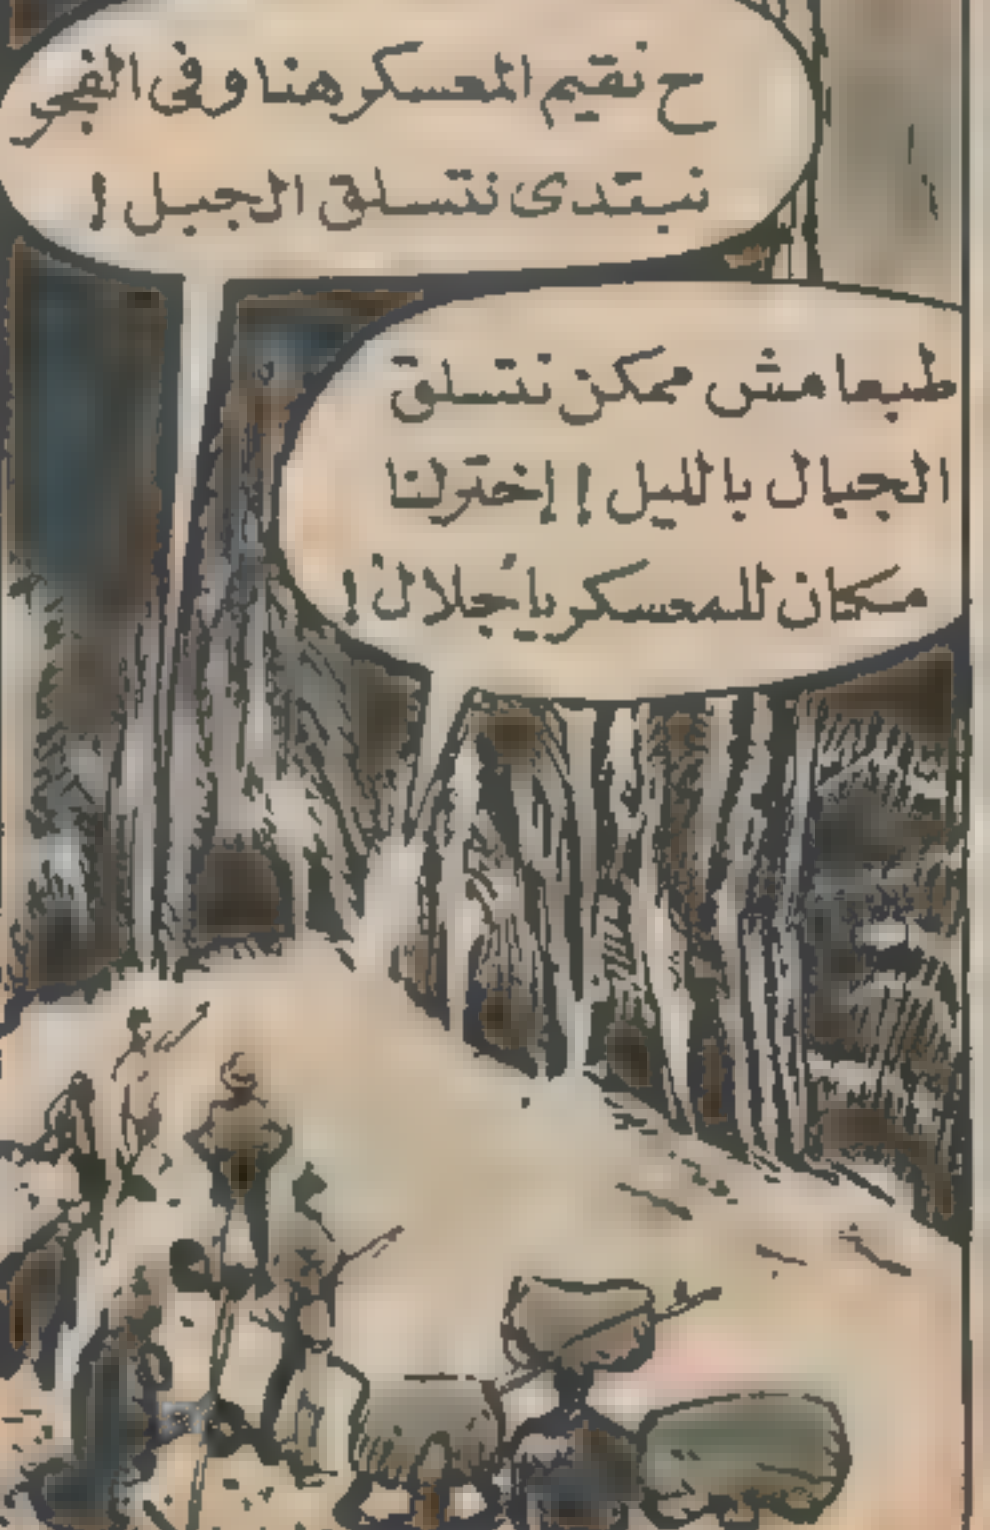 ح نقيم المعسكر هنا وفى الفجر
نبتدى نتسلق الجبل !
طبعا مش ممكن نتسلق
الجبال بالليل ! إختر لنا
مكان للمعسكر يا جلال !